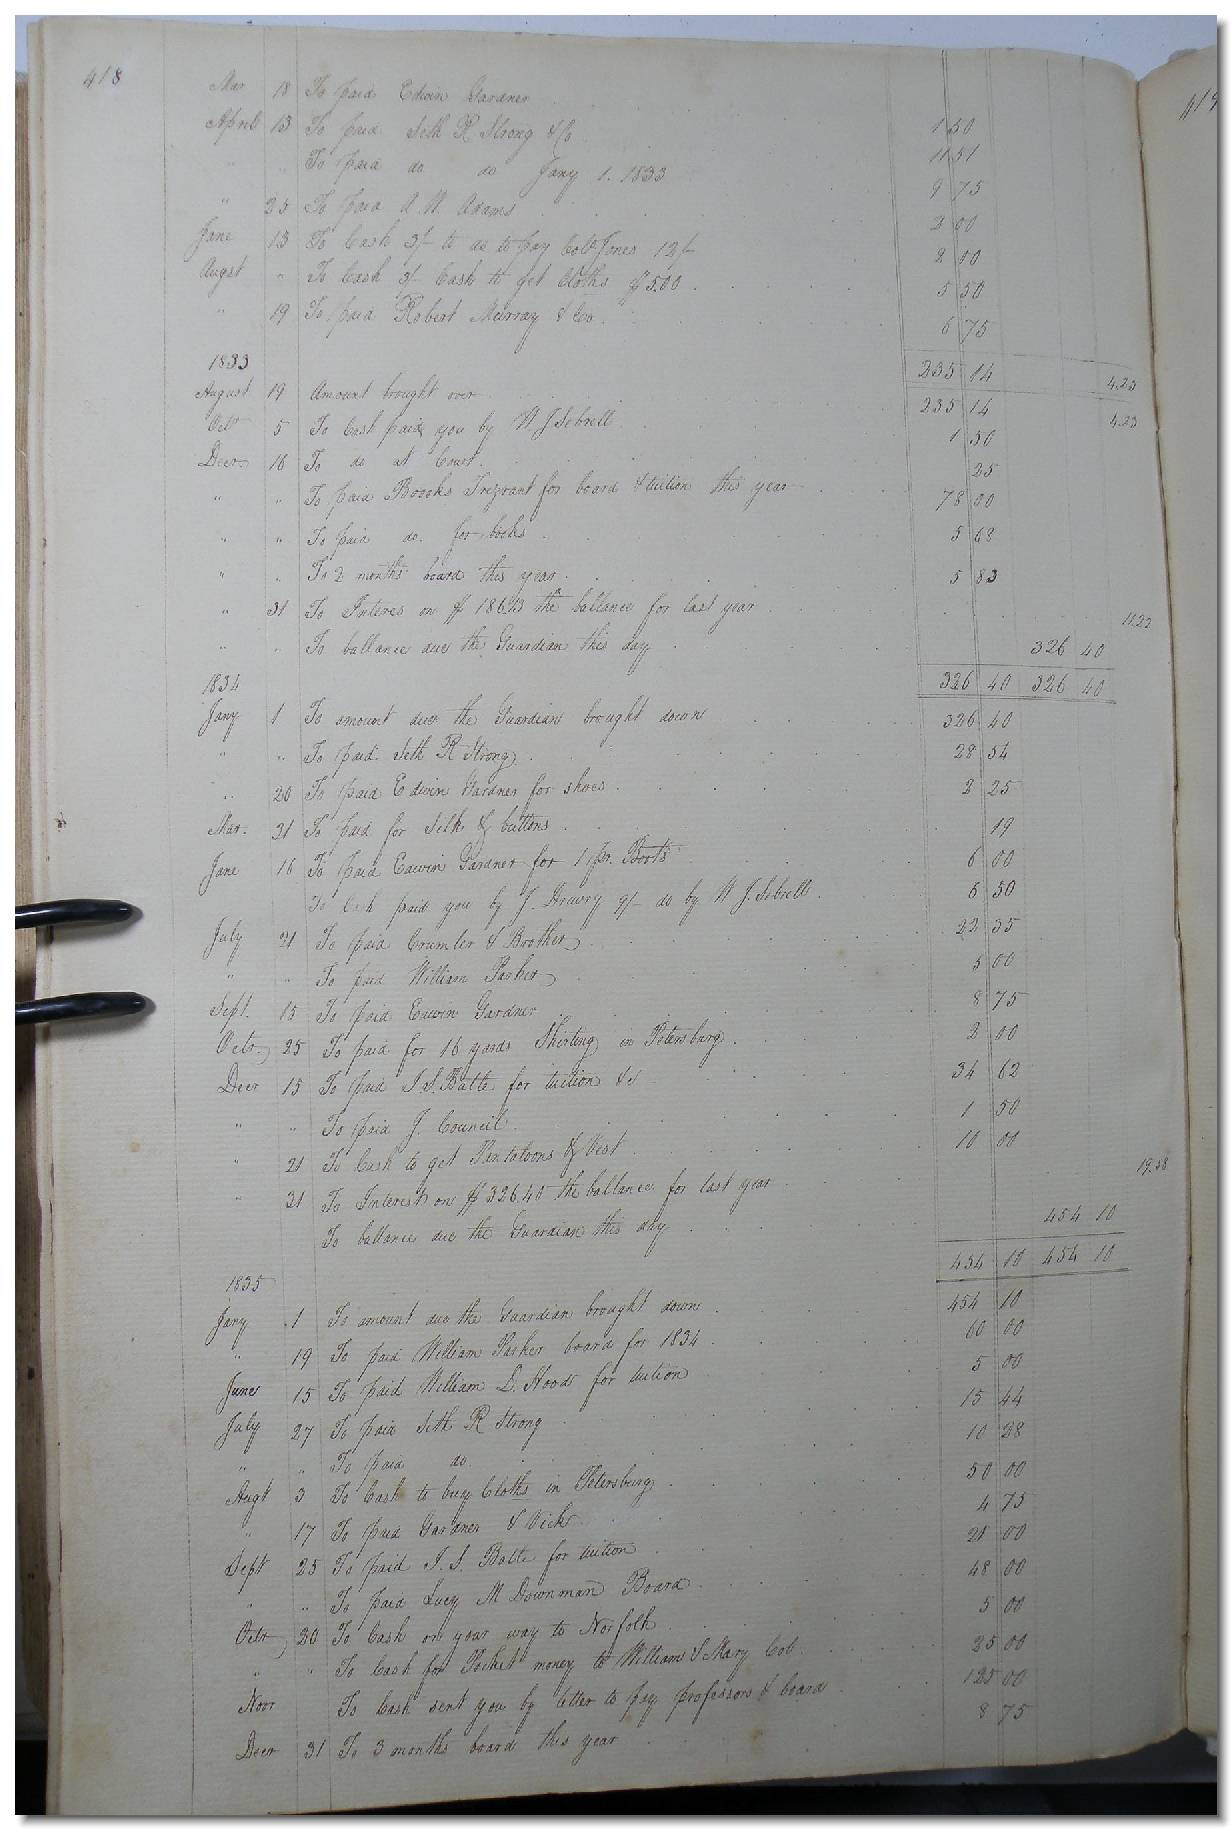 418
419
Mar 18 To paid Edwin Gardner 1 50
April 13 To paid Seth R Strong & Co 11 51
" " To paid do do Jany 1. 1833 9 75
" 23 To paid A. N. Adams 2 00
June 13 To Cash 3/- to do to pay Col. Jones 12/- 2 00
Augst " To Cash 3/- Cash to get Cloths $5.00 5 50
" 19 To paid Robert Murray & Co. 6 75
235 14 4.23
1833
August 19 Amount brought over 235 14 4.23
Octr 5 To Cash paid you by W J Sebrell 1 50
Decr 16 To do at Court 25
" " To paid Boooks Trezvant for board & tuition this year 78 00
" " To paid do. for books 5 68
" " To 2 months board this year 5 83
" 31 To Interes on $186.93 the ballance for last year 11.22
" " To ballance due the Guardian this day 326 40
326 40 326 40
1834
Jany 1 To amount due the Guardian brought down 326 40
" " To paid Seth R Strong 28 54
" 20 To paid Edwin Gardner for shoes 2 25
Mar. 31 To paid for Silk & buttons 19
June 16 To paid Edwin Gardner for 1 pr. Boots 6 00
To Cash paid you by J. Drewry 9/- do by W J. Sebrell 6 50
July 21 To paid Crumler & Brother 22 35
" " To paid William Parker 5 00
Sept. 15 To paid Edwin Gardner 8 75
Octr. 25 To paid for 16 yards Shirting in Petersburg 2 00
Decr 15 To paid J. S. Batte for tuition &c 34 62
" " To paid J. Council 1 50
" 21 To Cash to get Pantaloons & Vest 10 00
" 31 To Interest on $326.40 the ballance for last year 19.58
To ballance due the Guardian this day 454 10
454 10 454 10
1835
Jany 1 To amount due the Guardian brought down 454 10
" 19 To paid William Parker board for 1834 60 00
June 15 To paid William D. Hood for tuition 5 00
July 27 To paid Seth R Strong 15 44
" " To paid do 10 28
Augt 3 To Cash to buy Cloths in Petersburg 50 00
" 17 To paid Gardner & Vick 4 75
Sept 25 To paid J. S. Batte for tuition 21 00
" " To paid Lucy M Downman Board 48 00
Octr 20 To Cash on your way to Norfolk 5 00
" " To Cash for Pocket money to William & Mary Col. 25 00
Novr To Cash sent you by letter to pay professors & board 125 00
Decr 31 To 3 months board this year 8 75